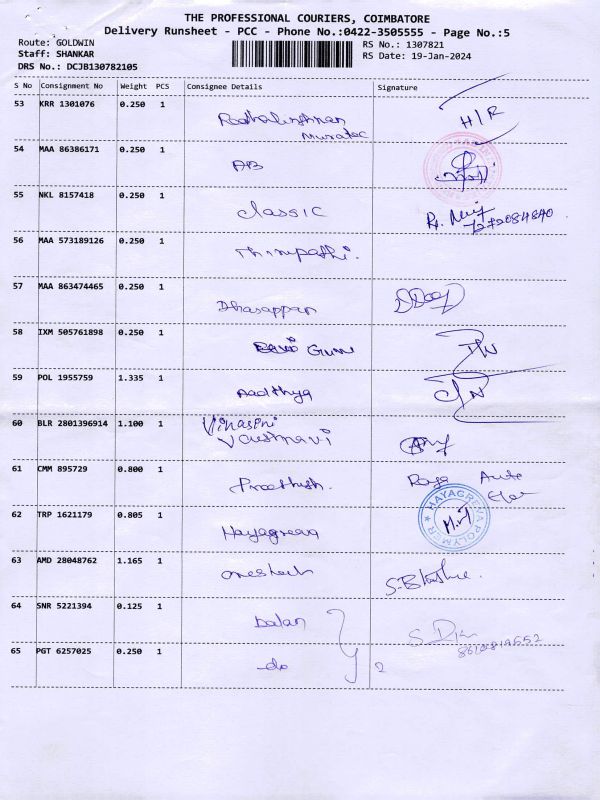 THE PROFESSIONAL COURIERS, COIMBATORE
Delivery Runsheet - PCC - Phone No.:0422-3505555 - Page No.:5
Route: GOLDWIN
Staff: SHANKAR
DRS No.: DCJB130782105
RS No.: 1307821
RS Date: 19-Jan-2024
S No Consignment No Weight PCS Consignee Details Signature
53 KRR 1301076 0.250 1 Radhakrishnan H/R
Muratec
54 MAA 86386171 0.250 1 AB
55 NKL 8157418 0.250 1 classic
56 MAA 573189126 0.250 1 Thirupathi.
57 MAA 863474465 0.250 1 Dharappan
58 IXM 505761898 0.250 1 Guru
59 POL 1955759 1.335 1 Aadthya
60 BLR 2801396914 1.100 1 Vaishnavi
61 CMM 895729 0.800 1 Preethish.
62 TRP 1621179 0.805 1 Hayagreeva HAYAGREVA POLYMER
63 AMD 28048762 1.165 1
64 SNR 5221394 0.125 1 balan
65 PGT 6257025 0.250 1 -do 2